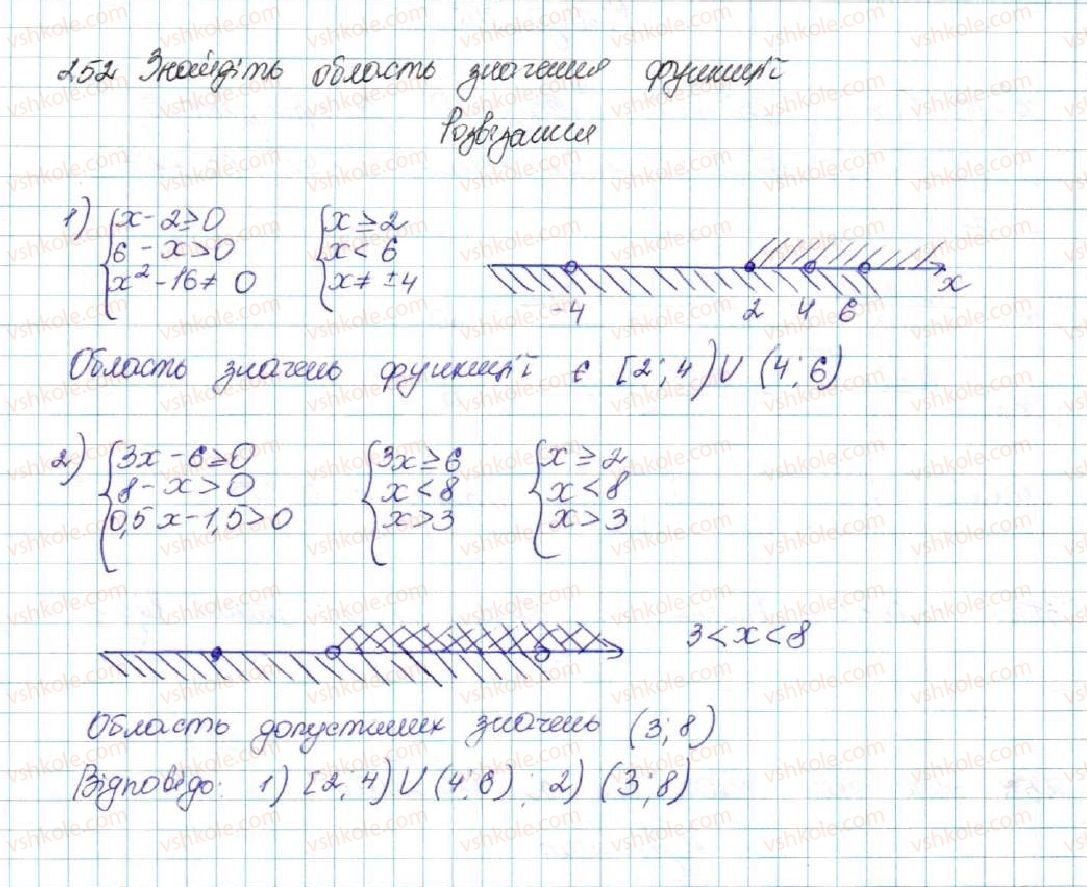 252 Знайдіть область значення функції
Розвізання
1) { x - 2 ≥ 0 { x ≥ 2
6 - x > 0 x < 6
x² - 16 ≠ 0 x ≠ ±4
-4 2 4 6 x
Область значень функції є [2; 4) U (4; 6)
2) { 3x - 6 ≥ 0 { 3x ≥ 6 { x ≥ 2
8 - x > 0 x < 8 x < 8
0,5x - 1,5 > 0 x > 3 x > 3
3 < x < 8
Область допустимих значень (3; 8)
Відповідь: 1) [2; 4) U (4; 6); 2) (3; 8)
vshkole.com